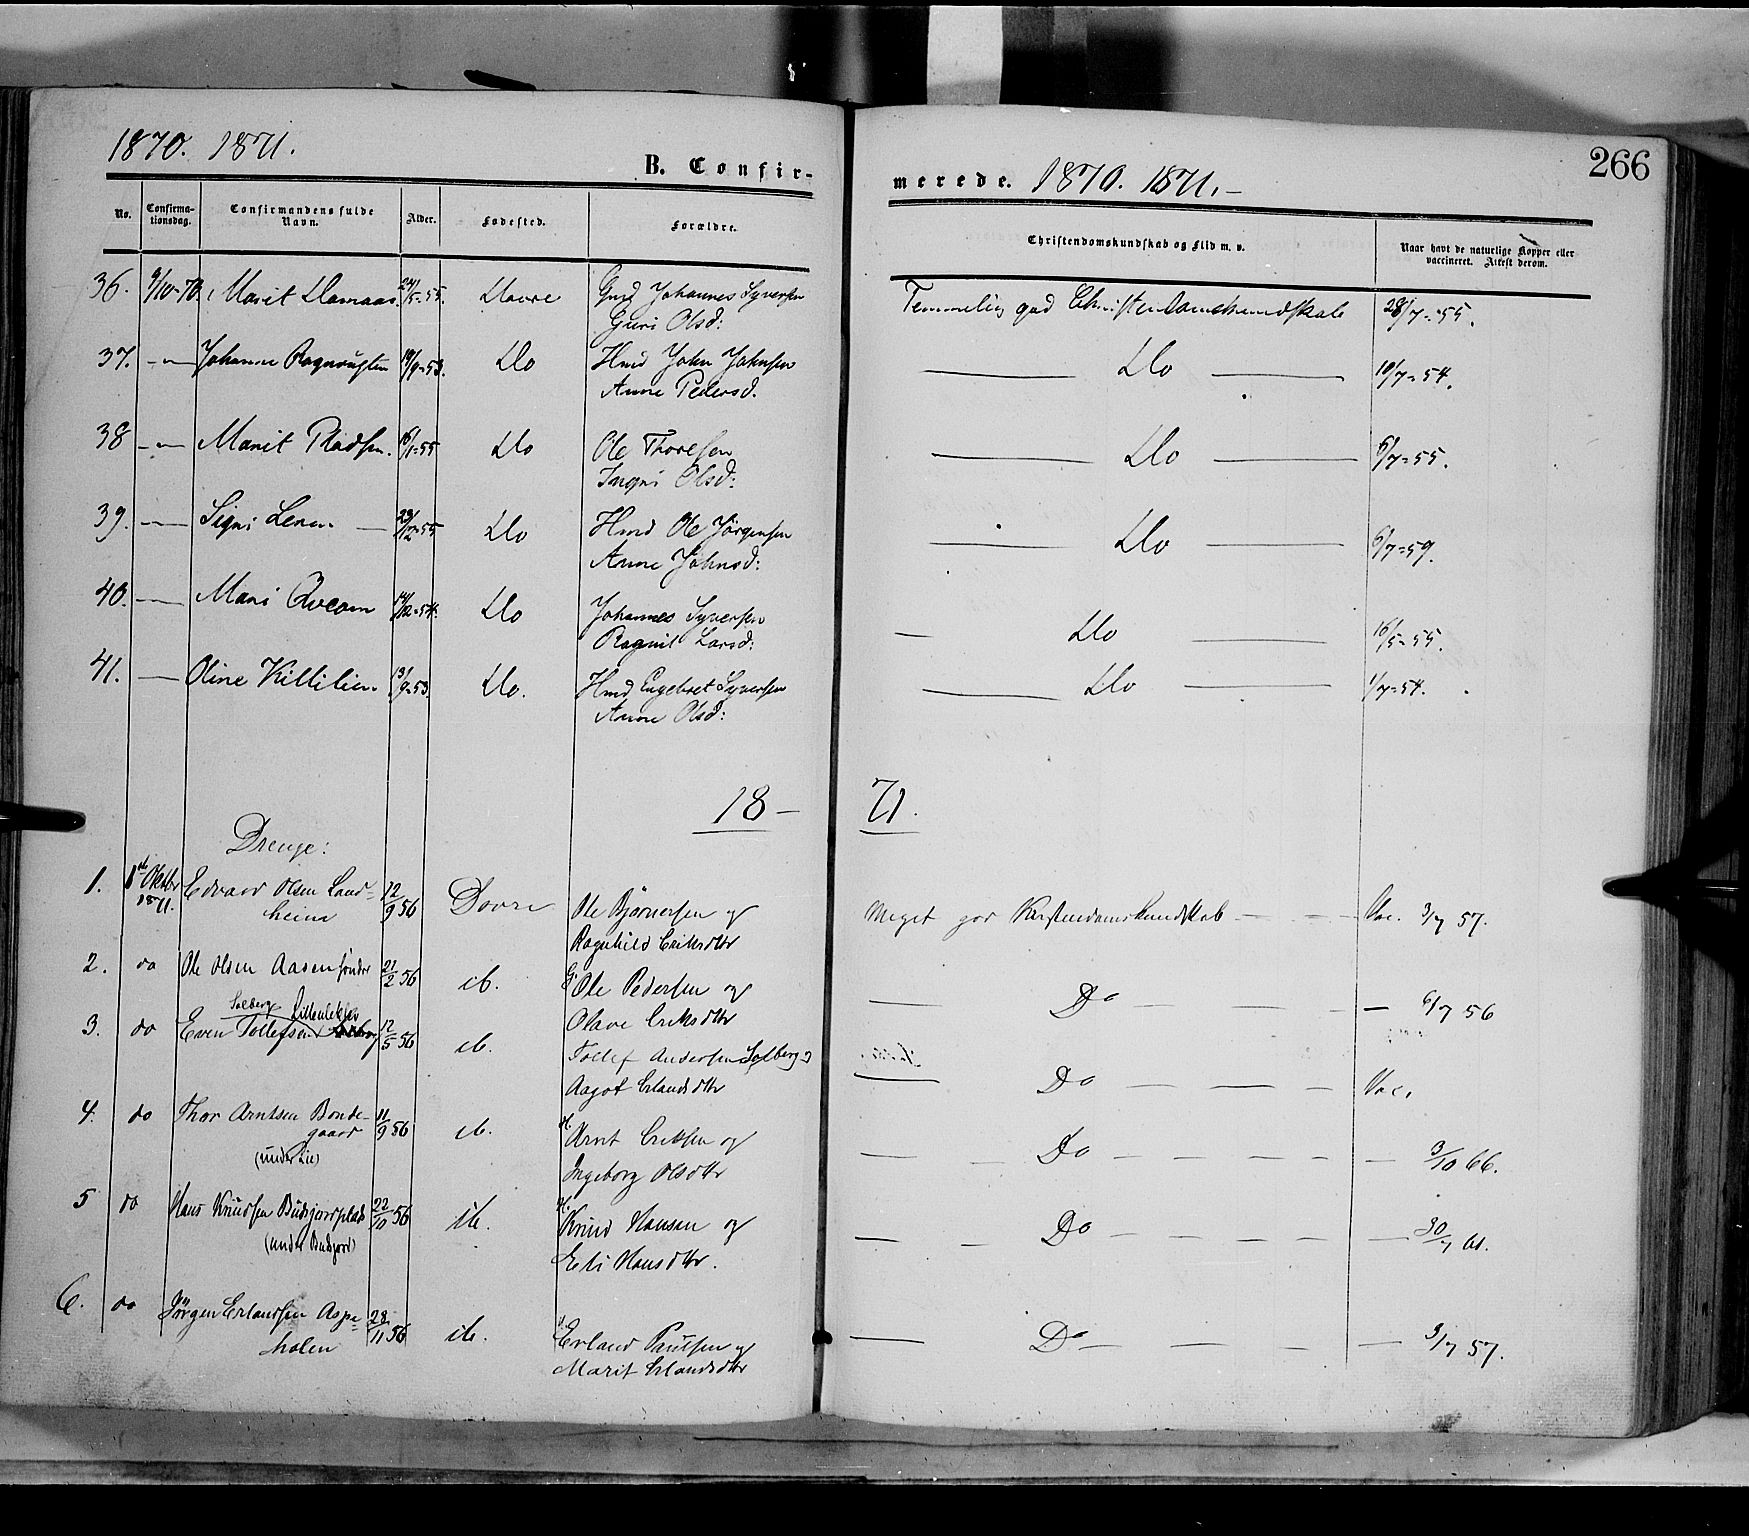 1870. 1871.
B. Confir-
merede. 1870. 1871.
266
No.
Confirma-
tionsdag.
Confirmandens fulde
Navn.
Alder.
Fødested.
Forældre.
Christendomskundskab og Flid m. v.
Naar havt de naturlige Kopper eller
vaccineret. Attest derom.
36. 9/10-70. Marit 24/5-55. Dovre Gmd Johannes Syversen Temmelig god Christendomskundskab 28/7=55.
Guri Olsd:
37. -"- Johanne 19/9=53. Do Hmd John Johnsen Do 10/7=54.
Anne Pedersd.
38 -"- Marit 16/1=55 Do Ole Thoresen Do 6/7=55.
Ingri Olsd:
39. — Signi 29/12=55 Do Hmd Ole Jörgensen Do 6/7=59.
Anne Johnsd:
40. — Mari 14/12=54. Do Johannes Syversen Do 16/5=55.
Ragnil Larsd:
41. — Oline Killilien 13/9=53. Do. Hmd Engebret Syversen Do 1/7=54.
Anne Olsd:
18 - 71.
Drenge:
1. 1ste Oktbr 1871. Edvard Olsen Land= 12/9 56 Dovre Ole Björnersen og Meget god Kristendomskundskab Vac. 3/7 57.
heim Ragnhild Eriksdtr
2. do Ole Olsen Aasen söndre 22/2 56 ib. G. Ole Pedersen og Do 6/7 56
Olave Eriksdtr
Solberg
3. do Even Tollefsen 12/5 56 ib. Tollef Andersen Solberg og Do Vac.
Aagot Erlandsdtr
4. do Thor Arntsen Bonde- 11/9 56 ib. H. Arnt Eriksen og Do 3/10 66.
gaard
(under Lie) Ingeborg Olsdtr
5 do Hans Knudsen Budsjordplads 22/10 56 ib. H. Knud Hansen og Do 30/7 61.
(under Budsjord) Eli Hansdtr.
6. do Jörgen Erlandsen Aspe= 28/11 56 ib. Erland Paulsen og Do 3/7 57.
holen Marit Erlandsdtr